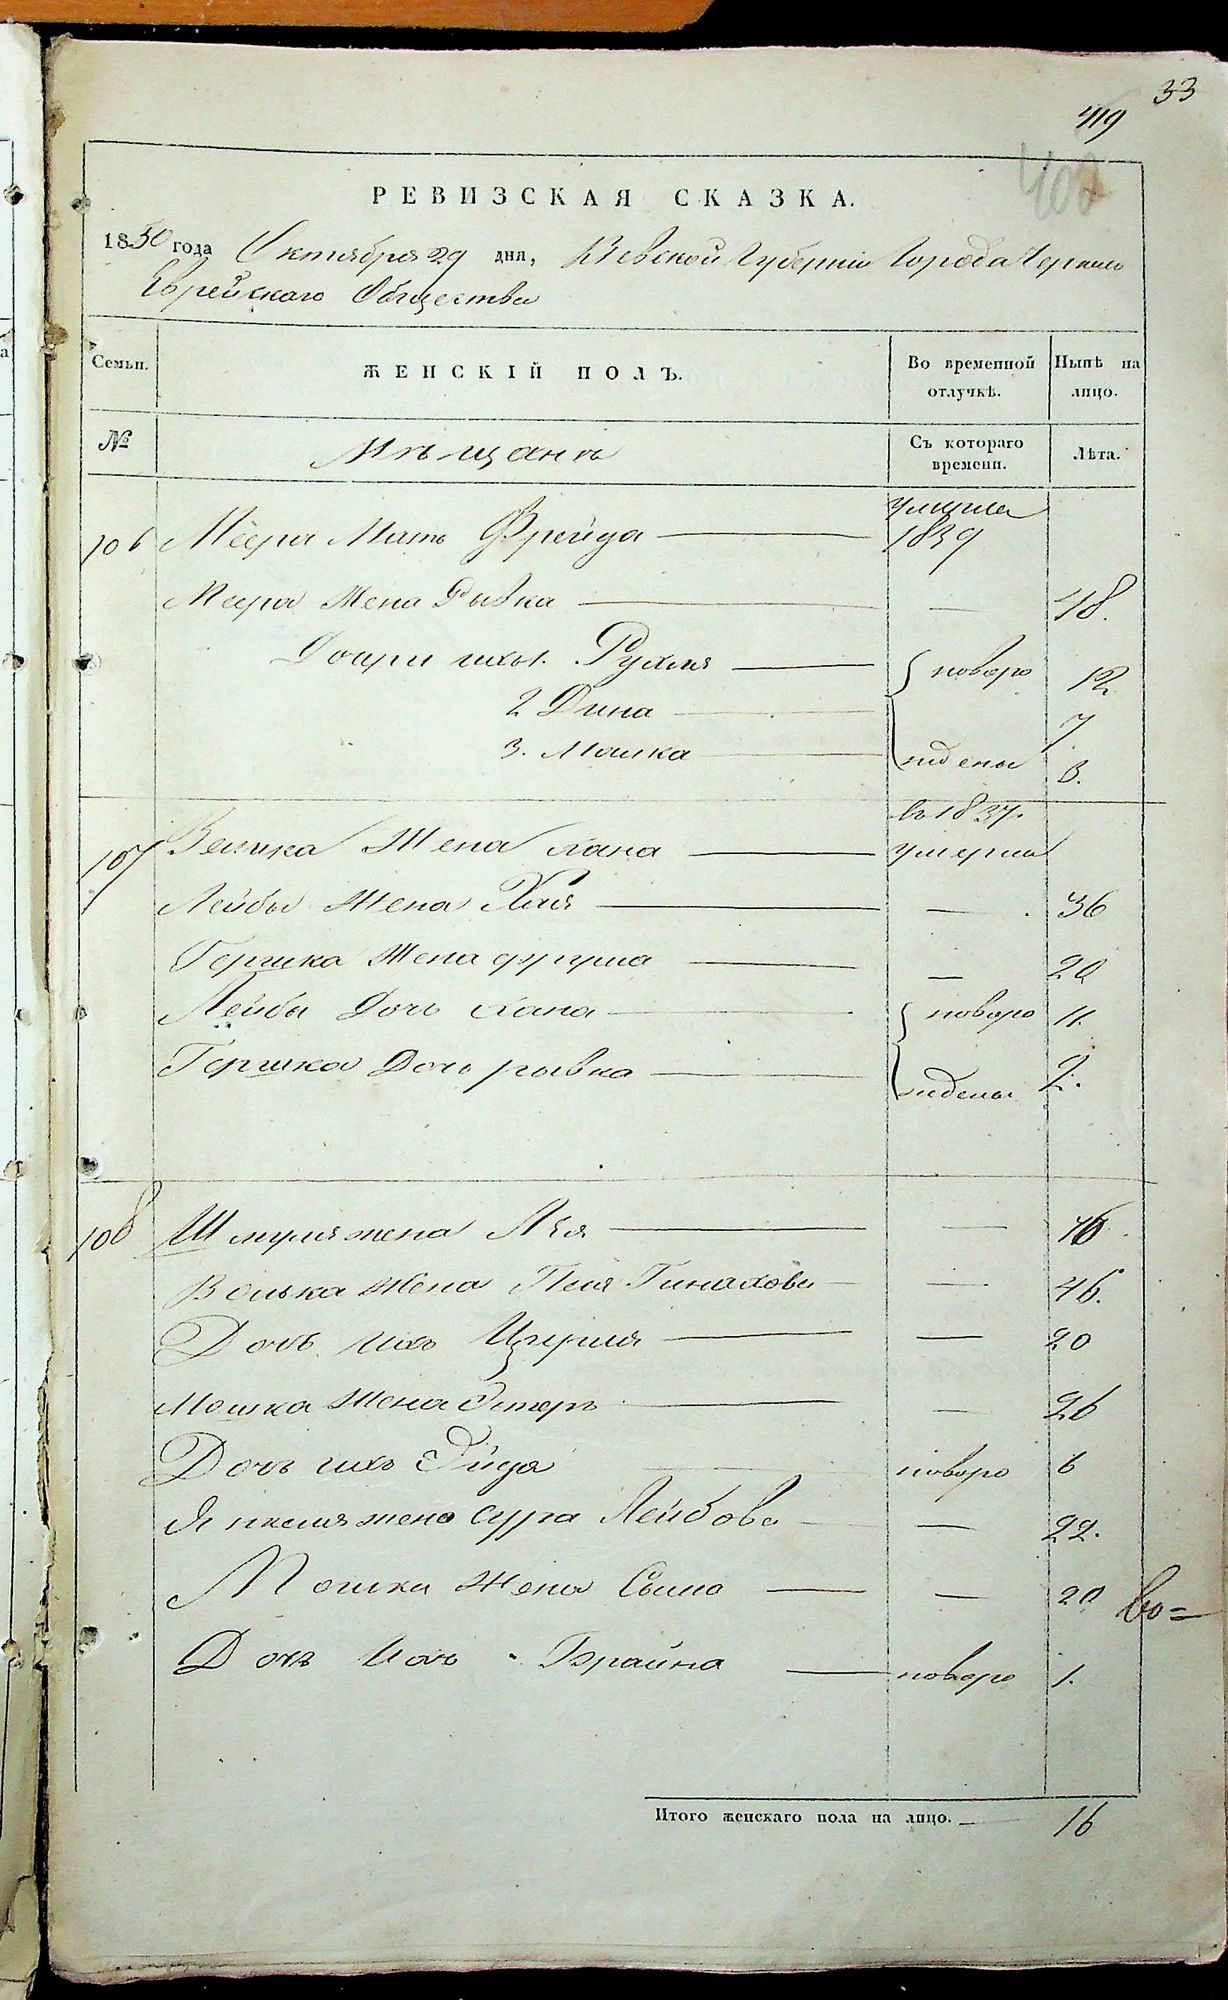 33
419
400
РЕВИЗСКАЯ СКАЗКА.
1850 года Октября 29 дня, Кіевской Губерніи Города
Еврейскаго Общества
Семьи. ЖЕНСКІЙ ПОЛЪ. Во временной отлучкѣ. Нынѣ на лицо.
№ Мѣщанъ Съ котораго времени. Лѣта.
106 Меера Мать Фрейда — умерла 1839
Меера Жена Рывка — — 48.
Дочри ихъ 1. Рухля — новоро 12
2 Дина — 7.
3. Малка — ждены 3.
107 Велика Жена Хана — въ 1837. умерла
Лейбы Жена Хая — — 36
Гершка Жена — — 20
Лейбы Дочь Хана — новоро 11.
Гершка Дочь рывка — ждены 2.
108 Шмуля жена Лея — — 46.
Волька Жена Пинахова — — 46.
Дочь ихъ Цырля — — 20
Мошка Жена Эстеръ — — 26
Дочь ихъ новоро 6
Янкеля жена Сура Лейбова — — 22.
Мошка Жена Сима — — 20
Во=
Дочь Ихъ Брайна — новоро 1.
Итого женскаго пола на лицо. — 16